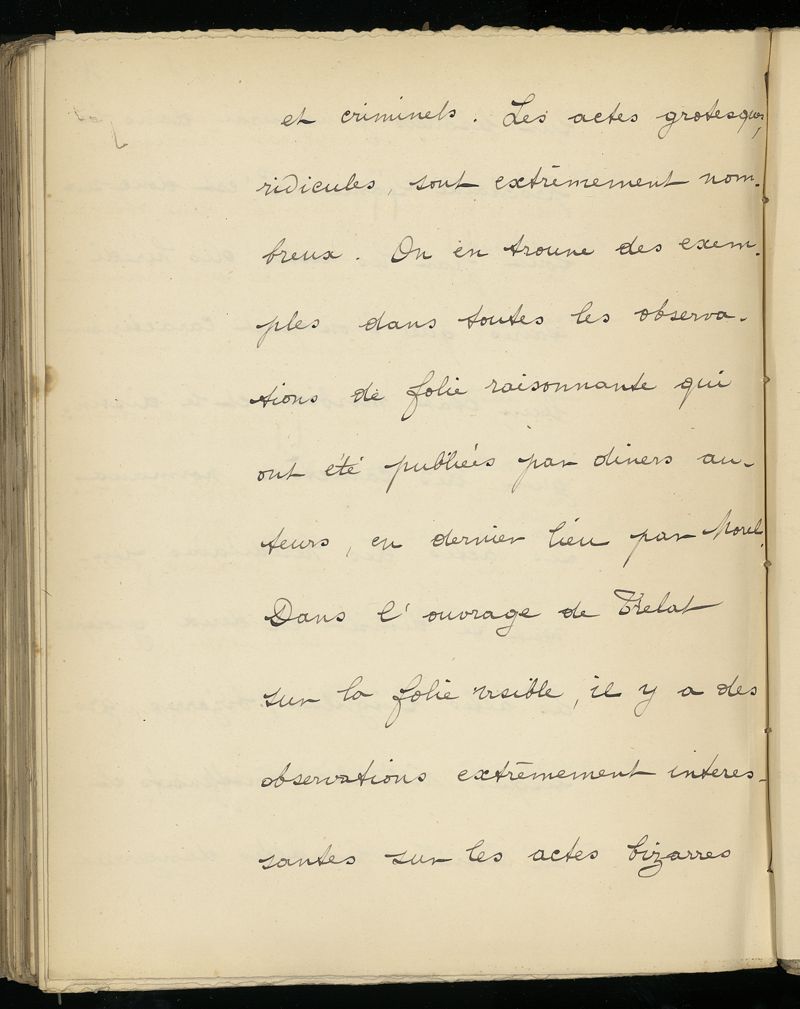 et criminels. Les actes grotesques,
ridicules, sont extrêmement nom-
breux. On en trouve des exem-
ples dans toutes les observa-
tions de folie raisonnante qui
ont été publiées par divers au-
teurs, en dernier lieu par Morel.
Dans l'ouvrage de Trélat
sur la folie visible, il y a des
observations extrêmement interes-
santes sur les actes bizarres